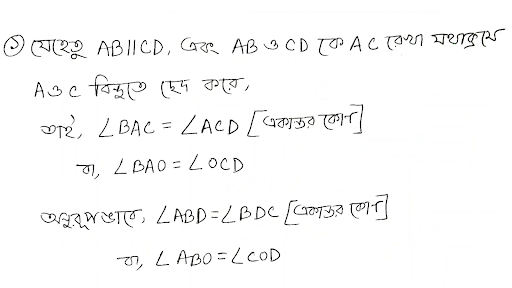 ① যেহেতু AB||CD, এবং AB ও CD কে AC রেখা যথাক্রমে
A ও C বিন্দুতে ছেদ করে,
তাই, ∠BAC = ∠ACD [একান্তর কোণ]
বা, ∠BAO = ∠OCD
অনুরূপভাবে, ∠ABD = ∠BDC [একান্তর কোণ]
বা, ∠ABO = ∠COD